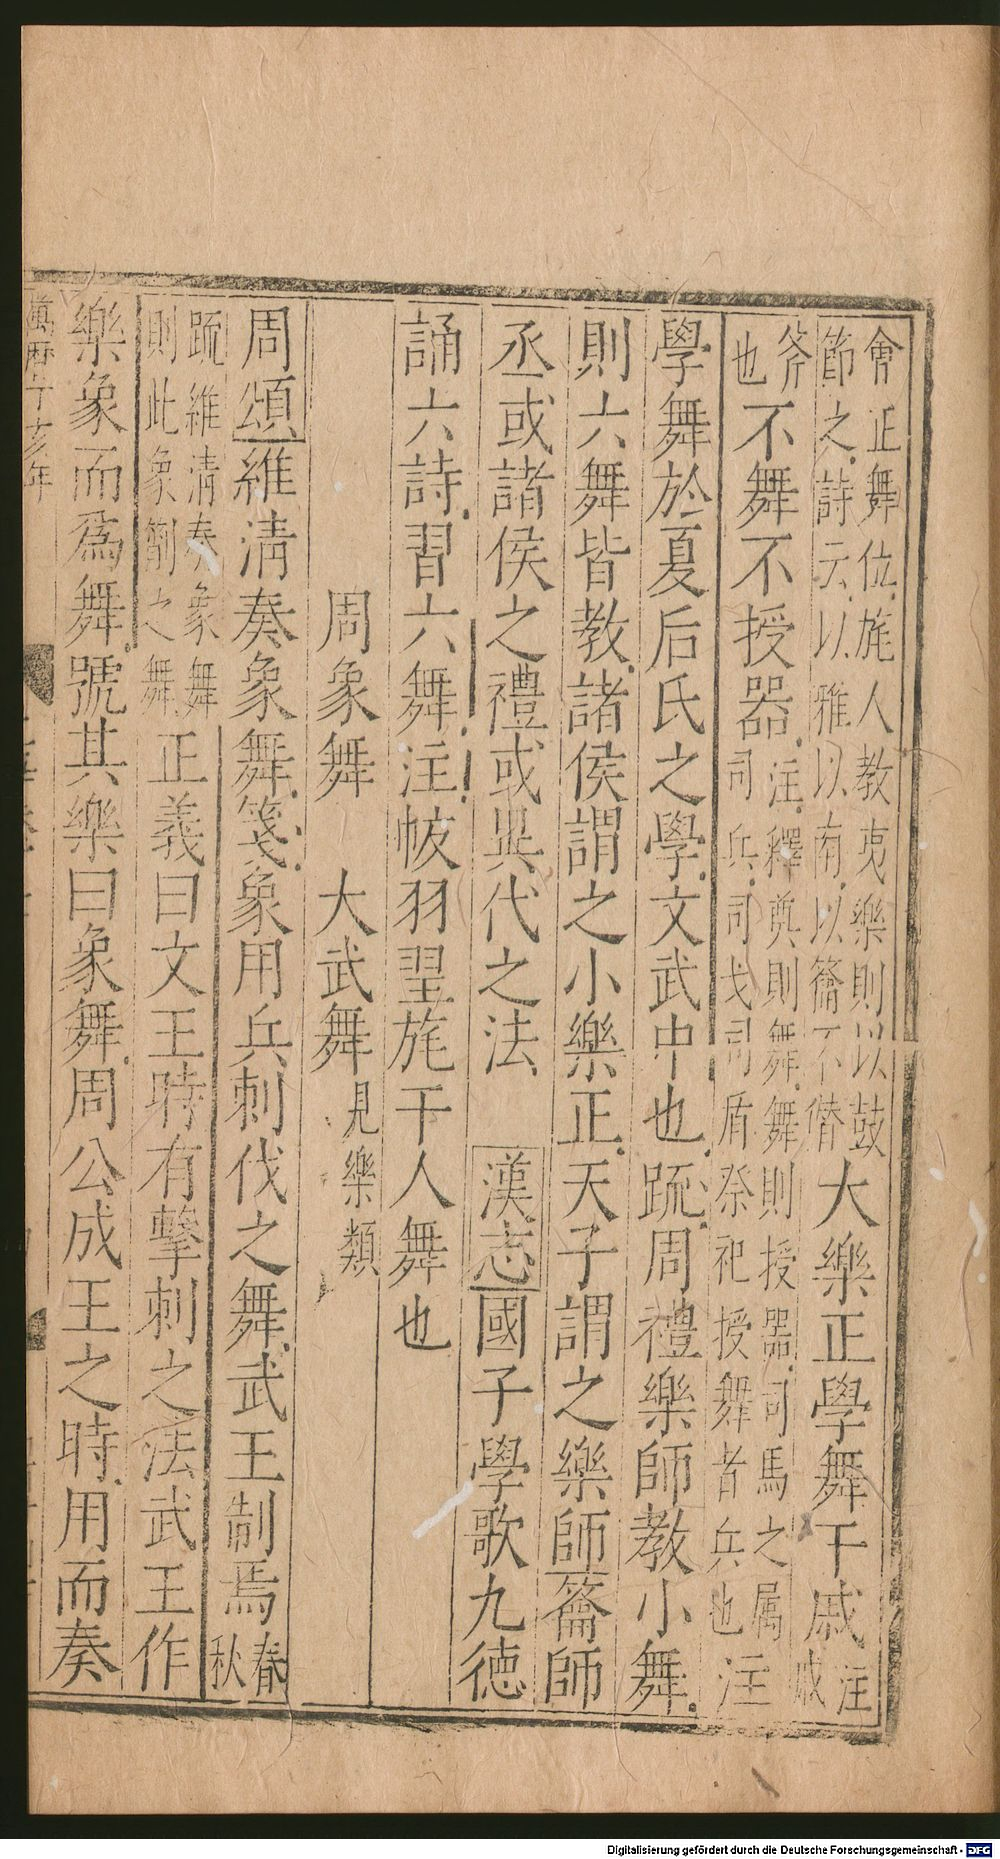 會正舞位旄人教夷樂則以鼓
節之詩云以雅以南以籥不僭大樂正學舞干戚注
戚
斧
也不舞不授器注釋奠則舞舞則授器司馬之属
司兵司戈司盾祭祀授舞者兵也注
學舞於夏后氏之學文武中也䟽周禮樂師教小舞
則六舞皆教諸侯謂之小樂正天子謂之樂師籥師
丞或諸侯之禮或異代之法 漢志國子學歌九德
誦六詩習六舞注帗羽翌旄干人舞也
周象舞 大武舞見樂類
周頌維清奏象舞箋象用兵刺伐之舞武王制焉春
秋
䟽維清奏象舞
則此象箾之舞正義曰文王時有擊刺之法武王作
樂象而爲舞號其樂曰象舞周公成王之時用而奏
萬曆丁亥年
Digitalisierung gefördert durch die Deutsche Forschungsgemeinschaft - DFG